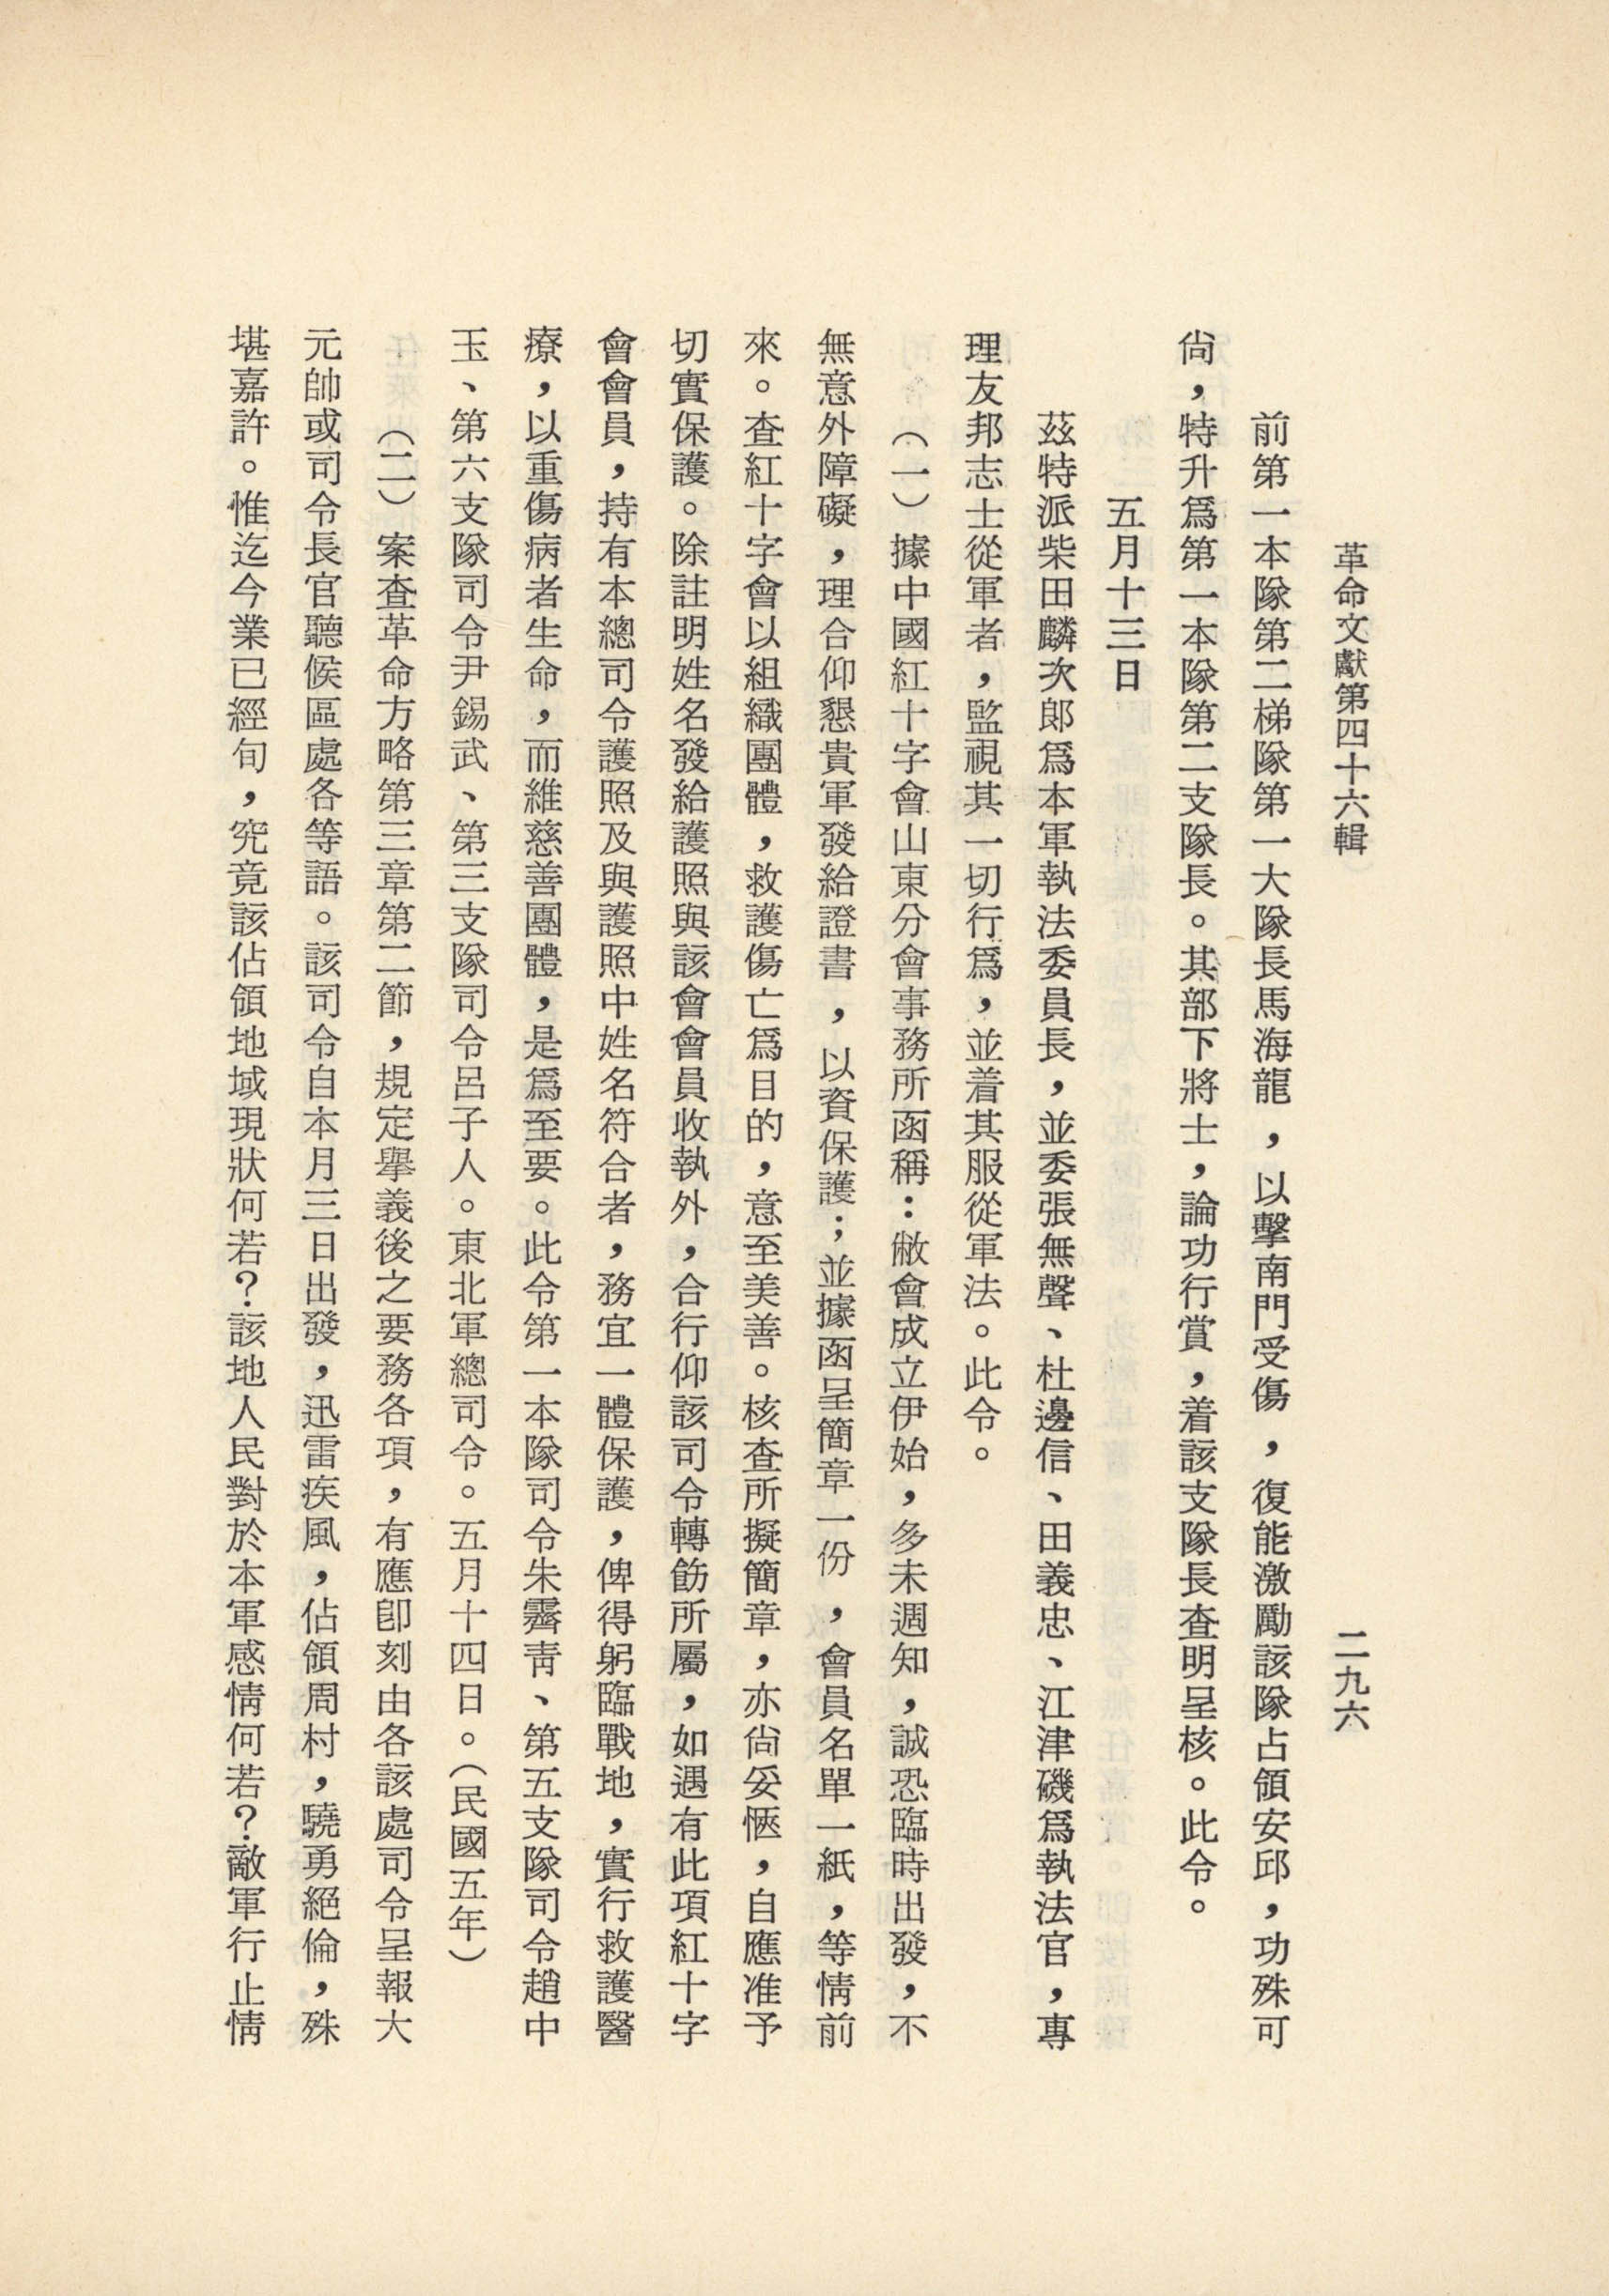 革命文獻第四十六輯
二九六
前第一本隊第二梯隊第一大隊長馬海龍，以擊南門受傷，復能激勵該隊占領安邱，功殊可
尙，特升爲第一本隊第二支隊長。其部下將士，論功行賞，着該支隊長查明呈核。此令。
五月十三日
茲特派柴田麟次郞爲本軍執法委員長，並委張無聲、杜邊信、田義忠、江津磯爲執法官，專
理友邦志士從軍者，監視其一切行爲，並着其服從軍法。此令。
（一）據中國紅十字會山東分會事務所函稱：敝會成立伊始，多未週知，誠恐臨時出發，不
無意外障礙，理合仰懇貴軍發給證書，以資保護；並據函呈簡章一份，會員名單一紙，等情前
來。查紅十字會以組織團體，救護傷亡爲目的，意至美善。核查所擬簡章，亦尙妥愜，自應准予
切實保護。除註明姓名發給護照與該會會員收執外，合行仰該司令轉飭所屬，如遇有此項紅十字
會會員，持有本總司令護照及與護照中姓名符合者，務宜一體保護，俾得躬臨戰地，實行救護醫
療，以重傷病者生命，而維慈善團體，是爲至要。此令第一本隊司令朱霽靑、第五支隊司令趙中
玉、第六支隊司令尹錫武、第三支隊司令呂子人。東北軍總司令。五月十四日。（民國五年）
（二）案查革命方略第三章第二節，規定舉義後之要務各項，有應卽刻由各該處司令呈報大
元帥或司令長官聽候區處各等語。該司令自本月三日出發，迅雷疾風，佔領周村，驍勇絕倫，殊
堪嘉許。惟迄今業已經旬，究竟該佔領地域現狀何若？該地人民對於本軍感情何若？敵軍行止情